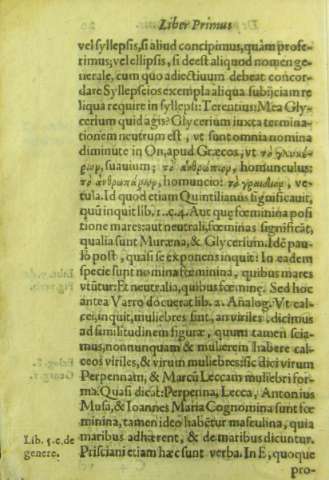 Liber Primus
vel syllepsis, si aliud concipimus, quàm profe-
rimus; vel ellipsis, si deest aliquod nomen ge-
nerale, cum quo adiectiuum debeat concor-
dare Syllepseos exempla aliqua subijciam re-
liqua require in syllepsi: Terentius: Mea Gly-
cerium quid agis? Glycerium iuxta termina-
tionem neutrum est, vt sunt omnia nomina
diminuta in On, apud Græcos, vt
suauium; τὸ ἀνθρώπιον, homunculus:
τὸ ἀνθρωπάριον, homuncio: τὸ γραιδιον, ve-
tula. Id quod etiam Quintilianus significauit,
quū inquit lib. 1. c. 4. Aut quę fœminina posi
tione mares: aut neutrali, fœminas significāt,
qualia sunt Muræna, & Glycerium. Idē pau-
lò pòst, quasi se exponens inquit: In eadem
specie sunt nomina fœminina, quibus mares
vtūtur: Et neutralia, quibus fœminę. Sed hoc
antea Varro docuerat lib. 2. Analog. Vt cal-
cei, inquit, muliebres sint, an viriles, dicimus
ad similitudinem figuræ, quum tamen scia-
mus, nonnunquam & mulierem habere cal-
ceos viriles, & virum muliebres: sic dici virum
Perpennam, & Marcū Leccam muliebri for-
ma. Quasi dicat: Perpenna, Lecca, Antonius
Musa, & Ioannes Maria Cognomina sunt fœ
minina, tamen ideo habētur masculina, quia
maribus adhærent, & de maribus dicuntur.
Lib. 5. c. de
genere.
Prisciani etiam hæc sunt verba. In E, quoque
pro-